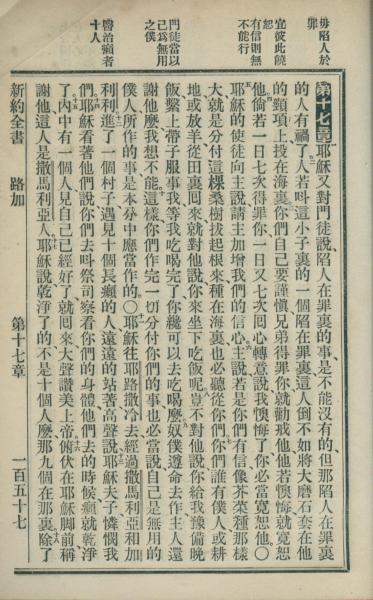 毋陷人於
罪
宜彼此饒
恕
有信則無
不能行
門徒當以
己為無用
之僕
醫治癩者
十人
第十七章耶穌又對門徒說陷人在罪裏的事是不能沒有的但那陷人在罪裏
的人有禍了人若叫這小子裏的一個陷在罪裏這人倒不如將大磨石套在他
的頸項上投在海裏你們自己要謹慎兄弟得罪你就勸戒他他若懊悔就寬恕
他倘若一日七次得罪你一日又七次回心轉意說我懊悔了你必當寬恕他〇
耶穌的使徒向主說請主加增我們的信心主說若是你們有信像芥菜種那樣
大就是分付這棵桑樹拔起根來種在海裏也必聽從你們你們誰有僕人或耕
地或放羊從田裏回來就對他說你來坐下吃飯呢豈不對他說你給我豫備晚
飯繫上帶子服事我等我吃喝完了你纔可以去吃喝麼奴僕遵命去作主人還
謝他麼我想不能這樣你們作完一切分付你們的事也必當說自己是無用的
僕人所作的事是本分中應當作的〇耶穌往耶路撒冷去經過撒馬利亞和加
利利進了一個村子遇見十個長癩的人遠遠的站著高聲說耶穌夫子憐憫我
們耶穌看著他們說你們去呌祭司察看你們的身體他們去的時候癩就乾淨
了內中有一個人見自己已經好了就回來大聲讚美上帝俯伏在耶穌脚前稱
謝他這人是撒馬利亞人耶穌說乾淨了的不是十個人麼那九個在那裏除了
新約全書 路加 第十七章 一百五十七